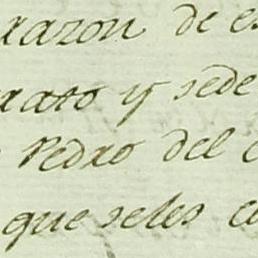 razon de es
rato y sede
Pedro del c
que seles c